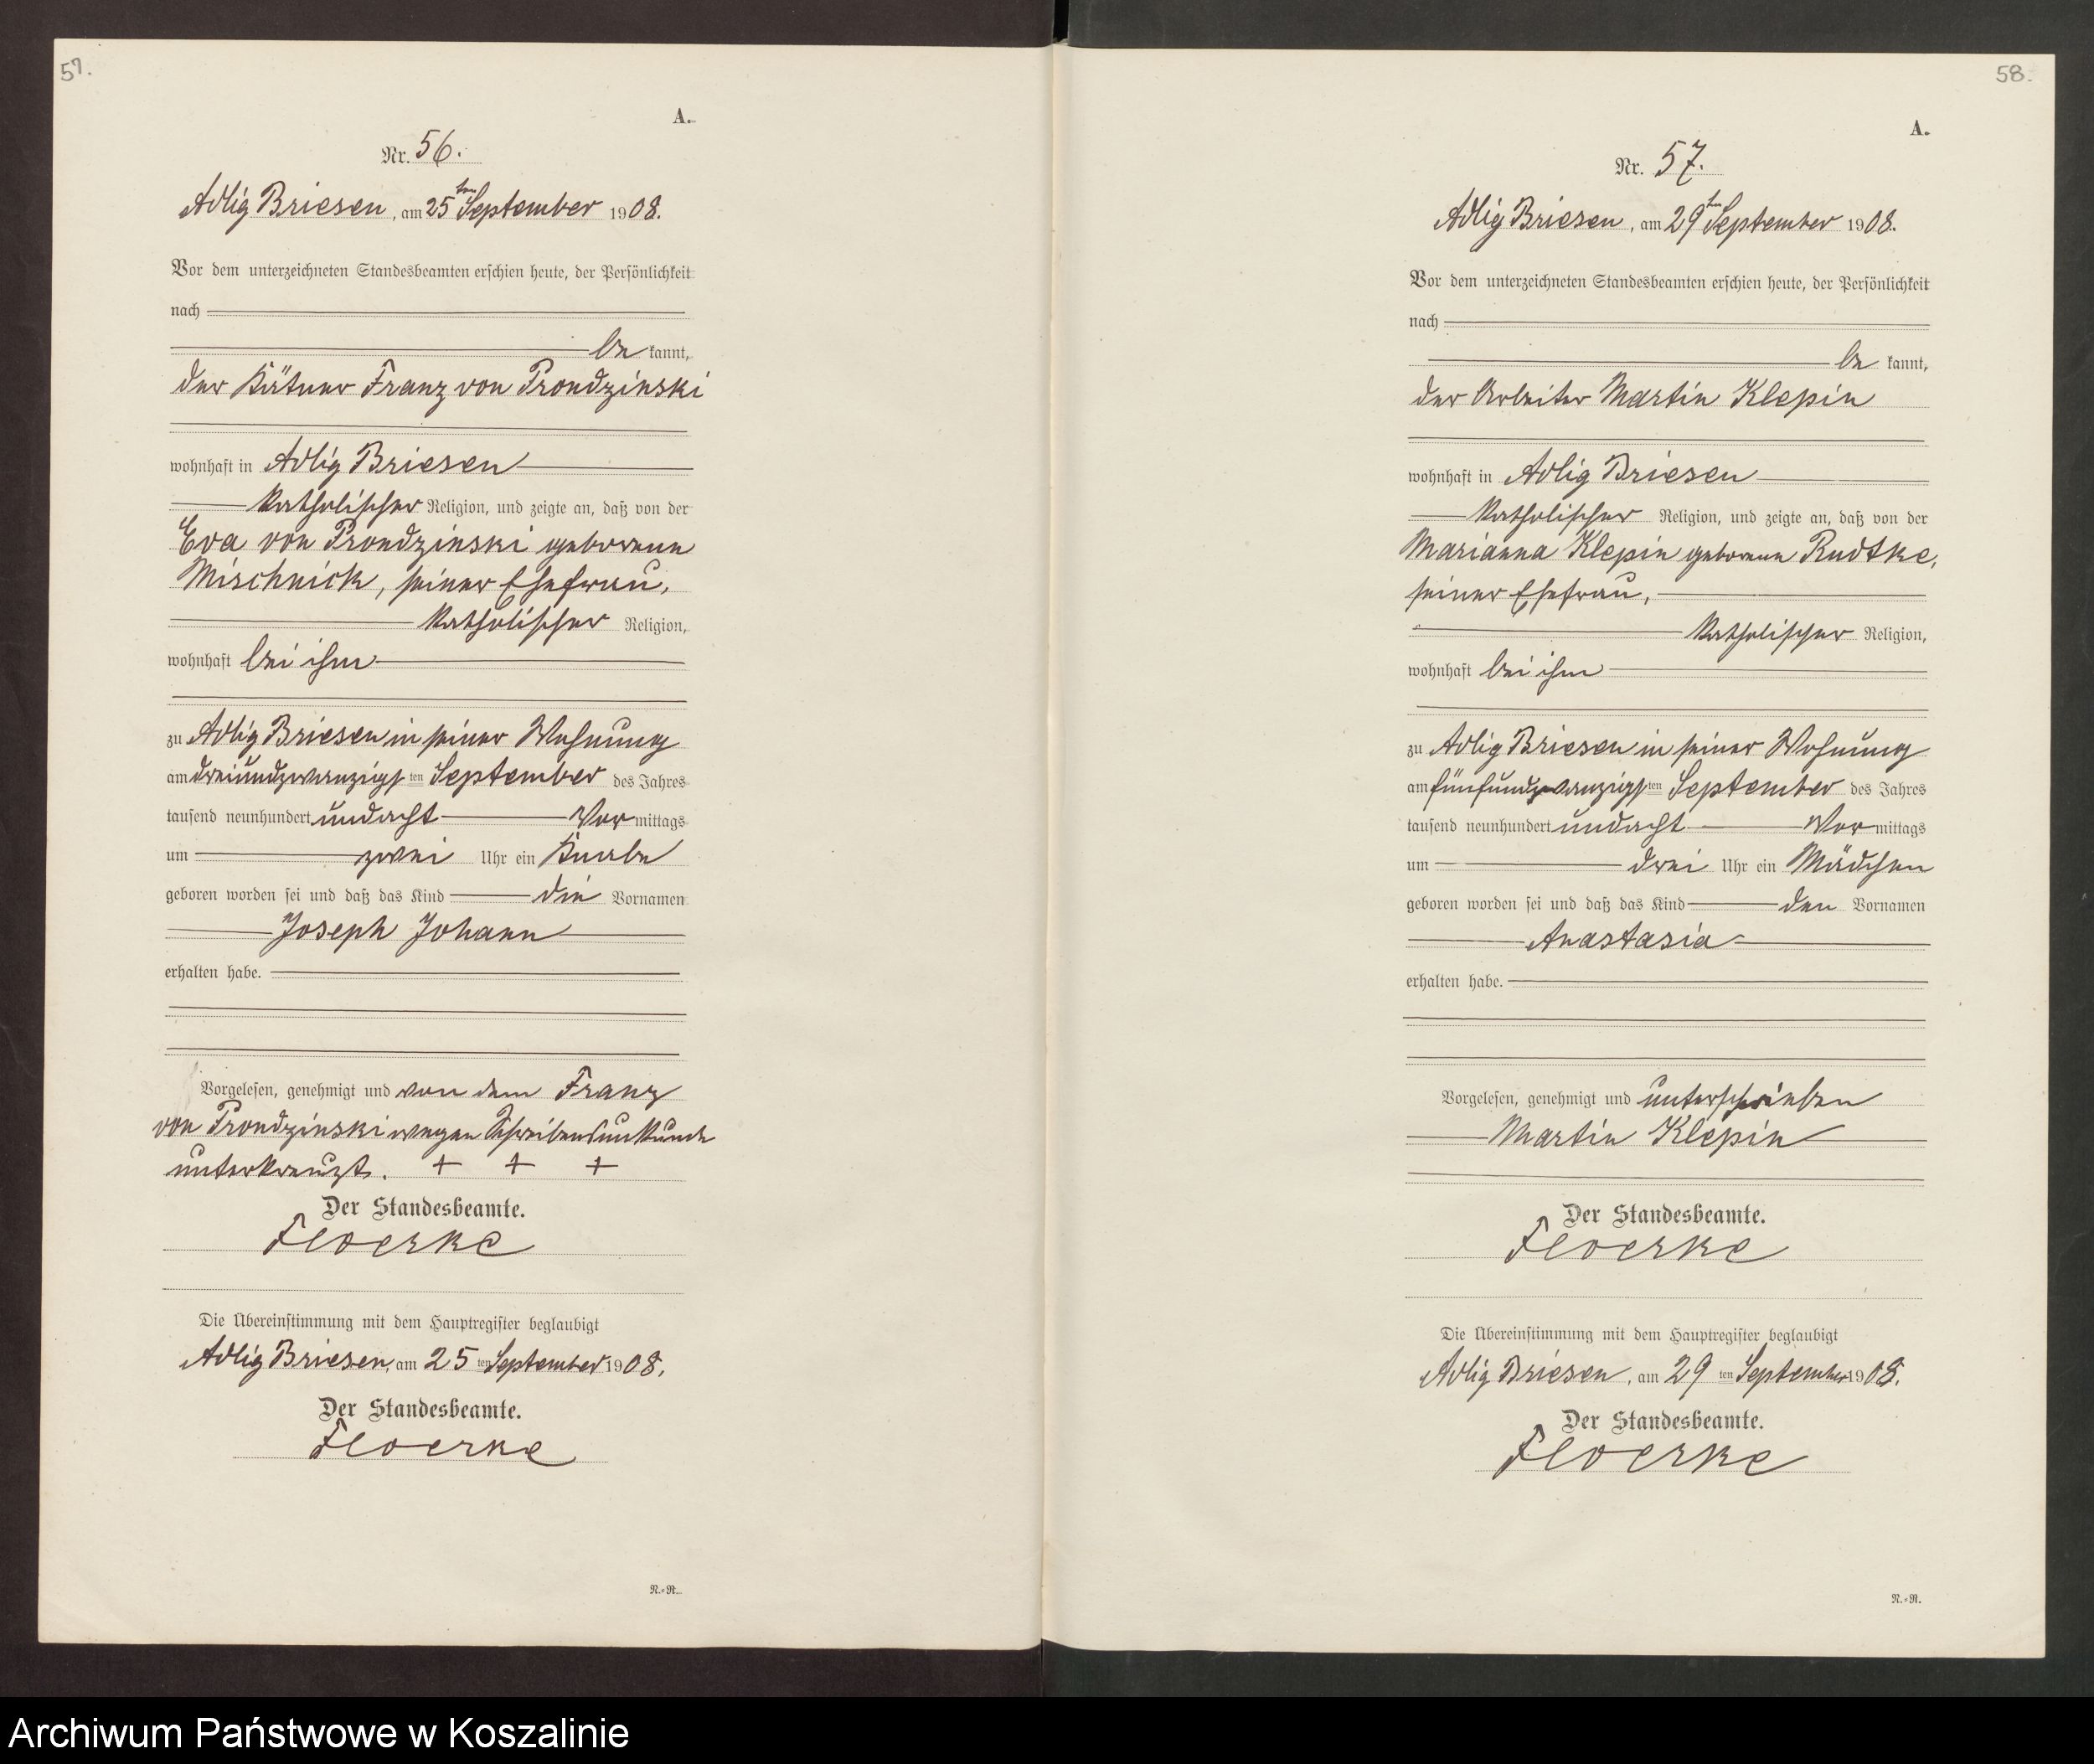 57.
A.
Nr. 56.
Adlig Briesen, am 25ten September 1908.
Vor dem unterzeichneten Standesbeamten erschien heute, der Persönlichkeit
nach
be kannt,
der Kätner Franz von Prondzinski
wohnhaft in Adlig Briesen
katholischer Religion, und zeigte an, daß von der
Eva von Prondzinski geborenen
Mischnick, seiner Ehefrau,
katholischer Religion,
wohnhaft bei ihm
zu Adlig Briesen in seiner Wohnung
am dreiundzwanzigsten September des Jahres
tausend neunhundert und acht Vormittags
um zwei Uhr ein Knabe
geboren worden sei und daß das Kind die Vornamen
Joseph Johann
erhalten habe.
Vorgelesen, genehmigt und von dem Franz
von Prondzinski wegen Schreibensunkunde
unterkreuzt. + + +
Der Standesbeamte.
Floerke
Die Übereinstimmung mit dem Hauptregister beglaubigt
Adlig Briesen, am 25 ten September 1908.
Der Standesbeamte.
Floerke
N.-R.
58.
A.
Nr. 57.
Adlig Briesen, am 29ten September 1908.
Vor dem unterzeichneten Standesbeamten erschien heute, der Persönlichkeit
nach
be kannt,
der Arbeiter Martin Klepin
wohnhaft in Adlig Briesen
katholischer Religion, und zeigte an, daß von der
Marianna Klepin geborenen Rudtke,
seiner Ehefrau,
katholischer Religion,
wohnhaft bei ihm
zu Adlig Briesen in seiner Wohnung
am fünfundzwanzigsten September des Jahres
tausend neunhundert und acht Vormittags
um drei Uhr ein Mädchen
geboren worden sei und daß das Kind den Vornamen
Anastasia
erhalten habe.
Vorgelesen, genehmigt und unterschrieben
Martin Klepin
Der Standesbeamte.
Floerke
Die Übereinstimmung mit dem Hauptregister beglaubigt
Adlig Briesen, am 29 ten September 1908.
Der Standesbeamte.
Floerke
N.-R.
Archiwum Państwowe w Koszalinie